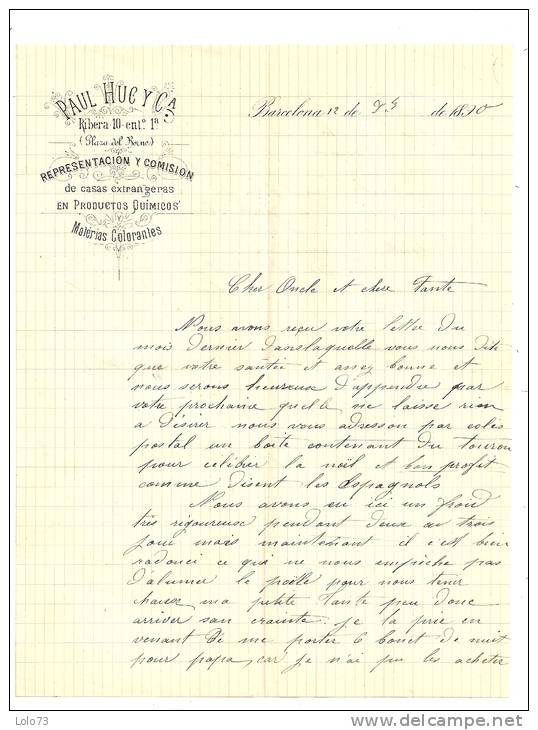 PAUL HUC Y Cª.
Ribera 10 entº 1ª
(Plaza del Borne)
REPRESENTACION Y COMISION
de casas extrangeras
EN PRODUCTOS QUÍMICOS
Y
Matérias Colorantes
Barcelona 12 de de 1890
Cher Oncle et chere Tante
Nous avons reçu votre lettre du
mois dernier danslaquelle vous nous dite
que votre santée et assez bonne et
nous serons heureux d'appendre par
votre prochaine quelle ne laisse rien
a désirer nous vous adresson par colis
postal un boite contenant du touron
pour céléber la nöel et bon profit
comme disent les Espagnols
Nous avons eu ici un froid
très rigoureuse pendant deux ou trois
jour mais maintenant il c'est bien
radouci ce qui ne nous empêche pas
d'alumer le poële pour nous tenir
ma petite Tante peu donc
arriver son crainte. Je la prie en
venant de me porter 6 bonet de nuit
pour papa, car je n'ai pu les acheter
Lolo73
www.delcampe.net